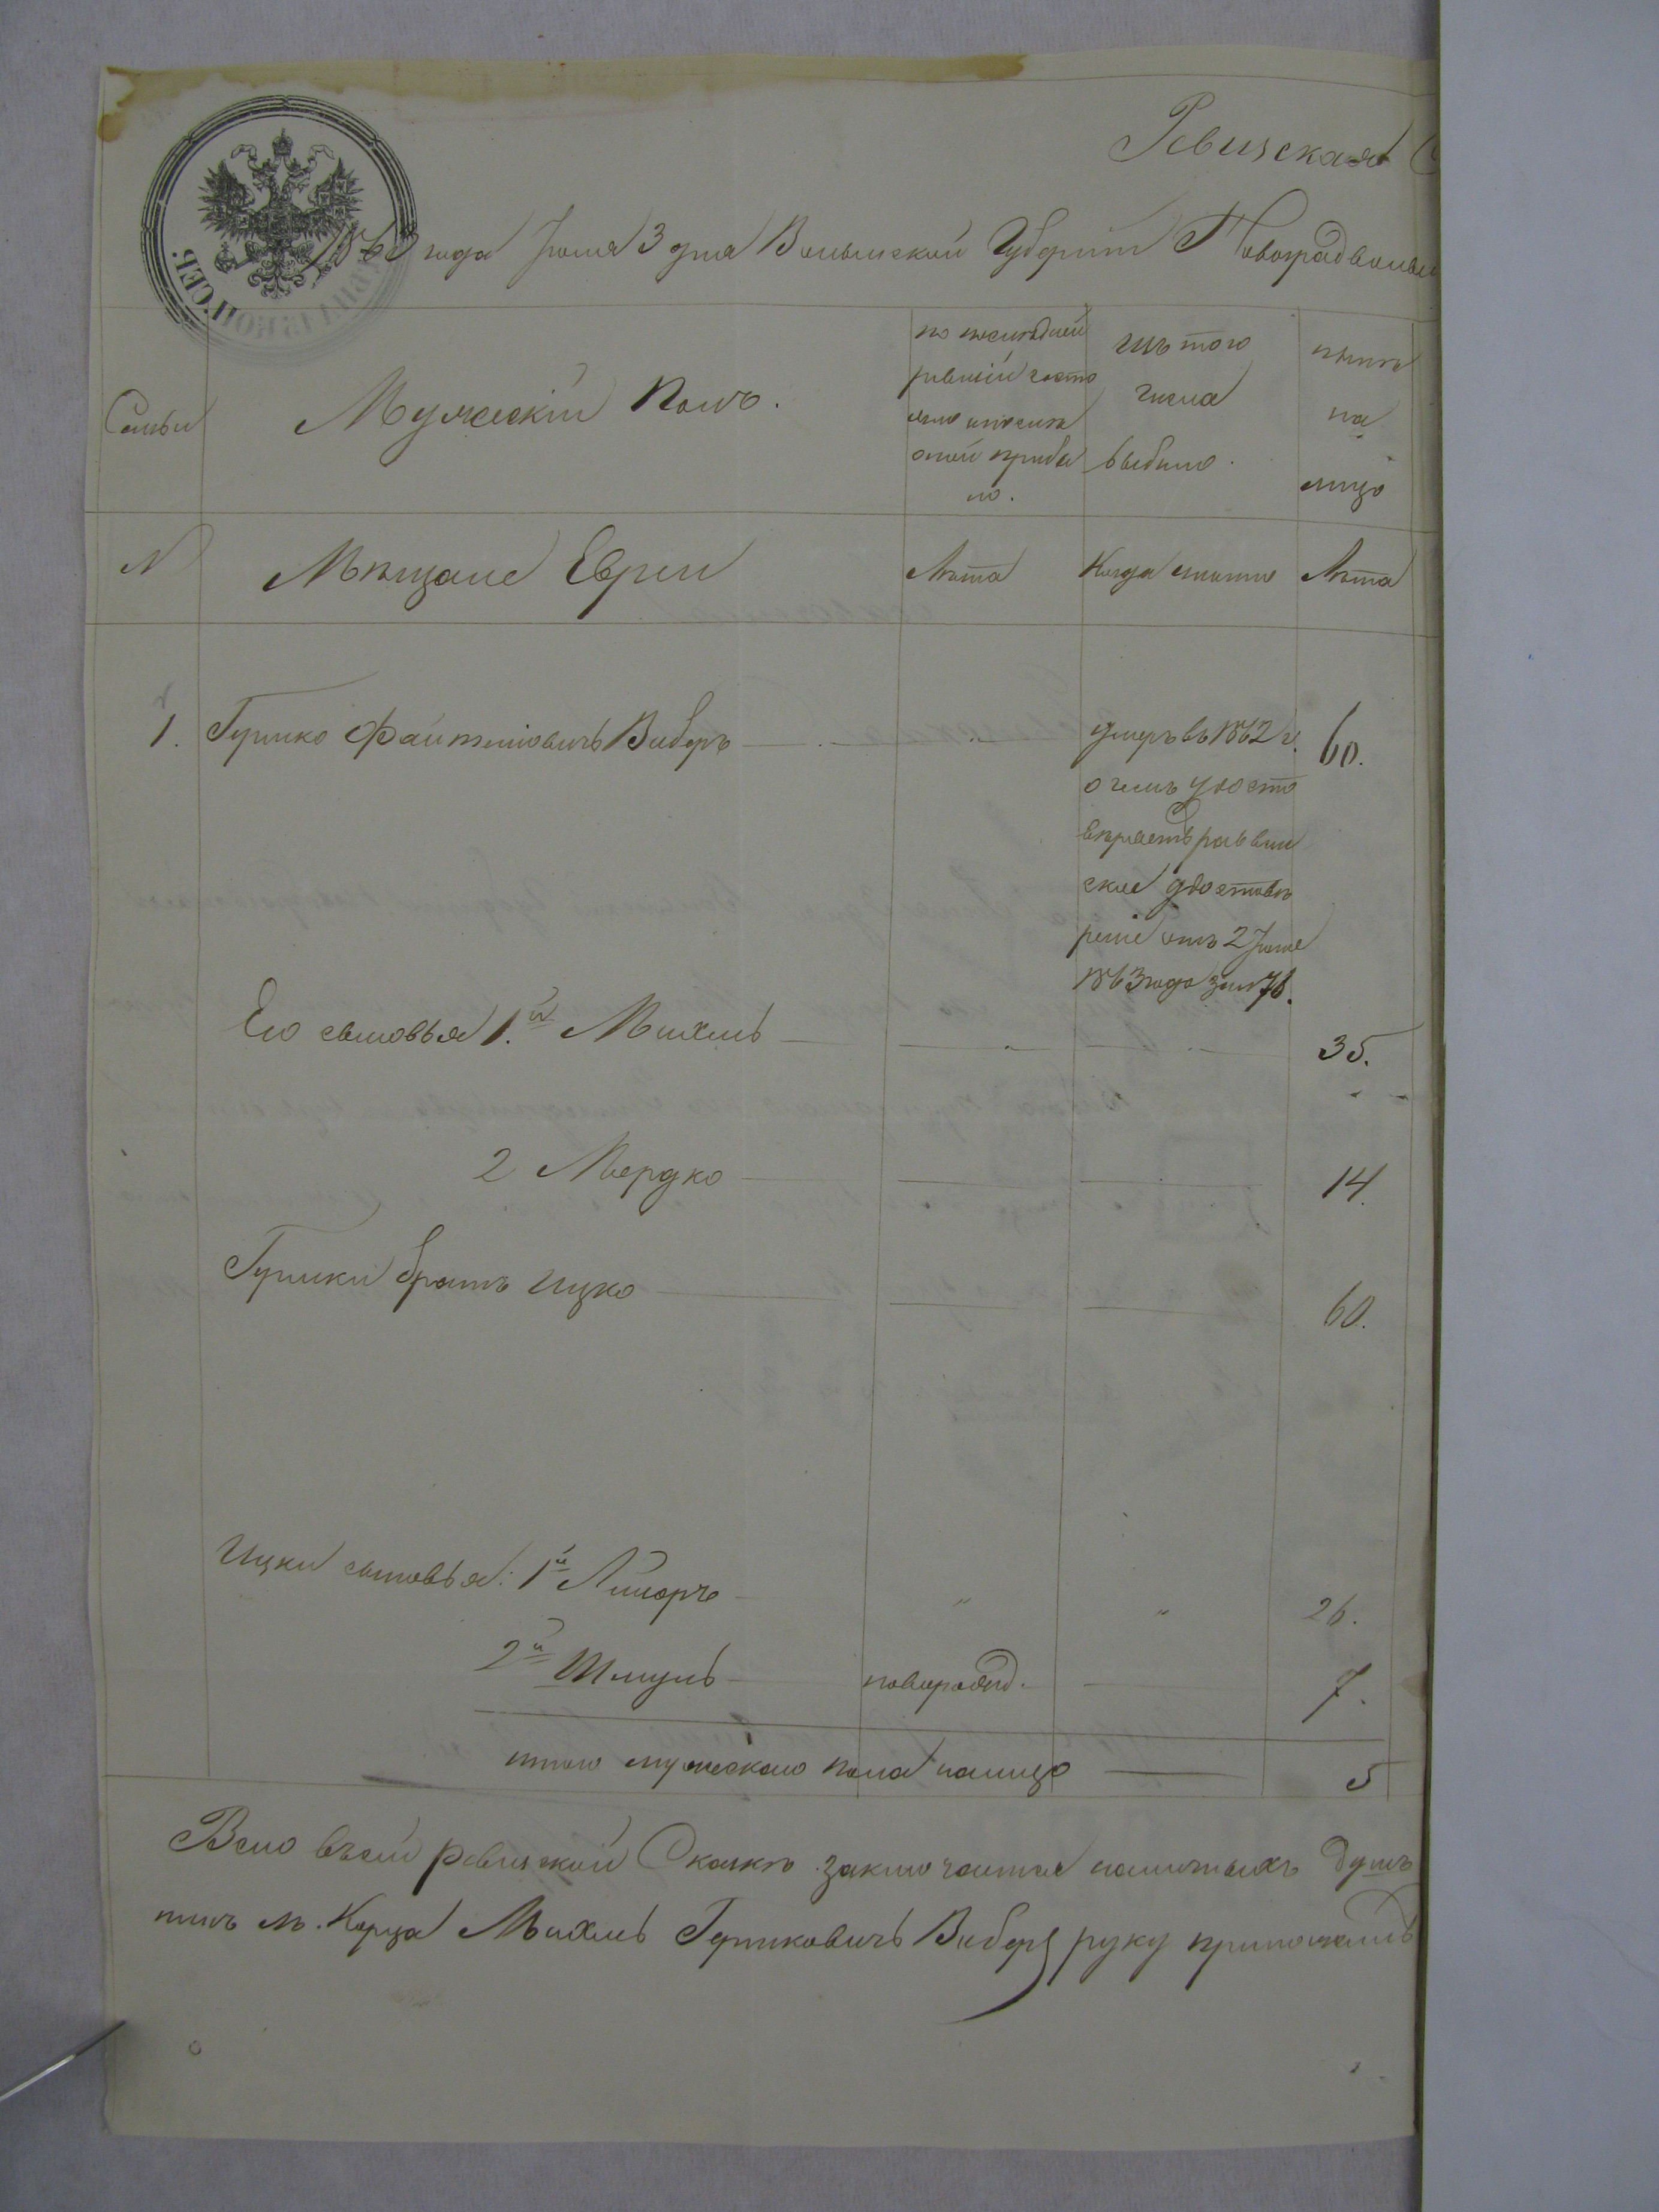 Ревизская
1863 года Июня 3 дня Волынской Губерніи Новоградволын
СЕР.
Семьи
Мужескій Полъ.
по последней
ревизіи состо
яло и после
оной прибы
ло.
Изъ того
числа
выбыло.
ныне
на
лицо
N
Мѣщане Евреи
Лѣта
Когда именно
Лѣта
1. Гершко Файтелиовичъ Виберъ
умеръ въ 1862 г. 60.
о чемъ удосто
вѣряетъ раввин
ское удостовѣ
реніе отъ 2 Июня
1863 года за N 78.
Его сыновья 1.й Михель 35.
2 Мордко 14.
Гершки братъ Ицко 60.
Ицки сыновья: 1й Лейзоръ " " 26.
2й Шмуль новорожд. 7.
итого мужескаго пола налицо 5
Всего въ сей ревизской Сказкѣ заключается наличныхъ душъ
нинъ м. Корца Михель Гершковичъ Виберъ руку приложилъ